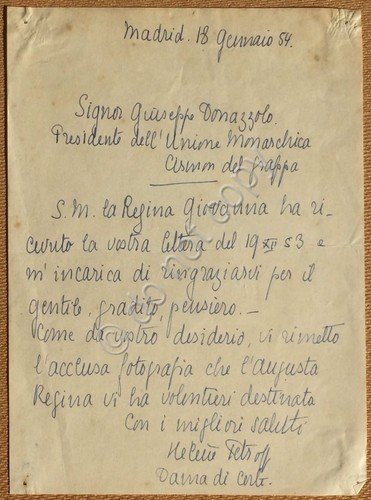 Madrid. 18 Gennaio 54.
Signor Giuseppe Donazzolo.
Presidente dell'Unione Monarchica
Cismon del grappa
S. M. la Regina Giovanna ha ri-
cevuto la vostra lettera del 19 XII 53 e
m'incarica di ringraziarvi per il
gentile, gradito, pensiero. —
Come da vostro desiderio, vi rimetto
l'acclusa fotografia che l'augusta
Regina vi ha volentieri destinata
Con i migliori saluti
Helene Petroff
Dama di Corte.